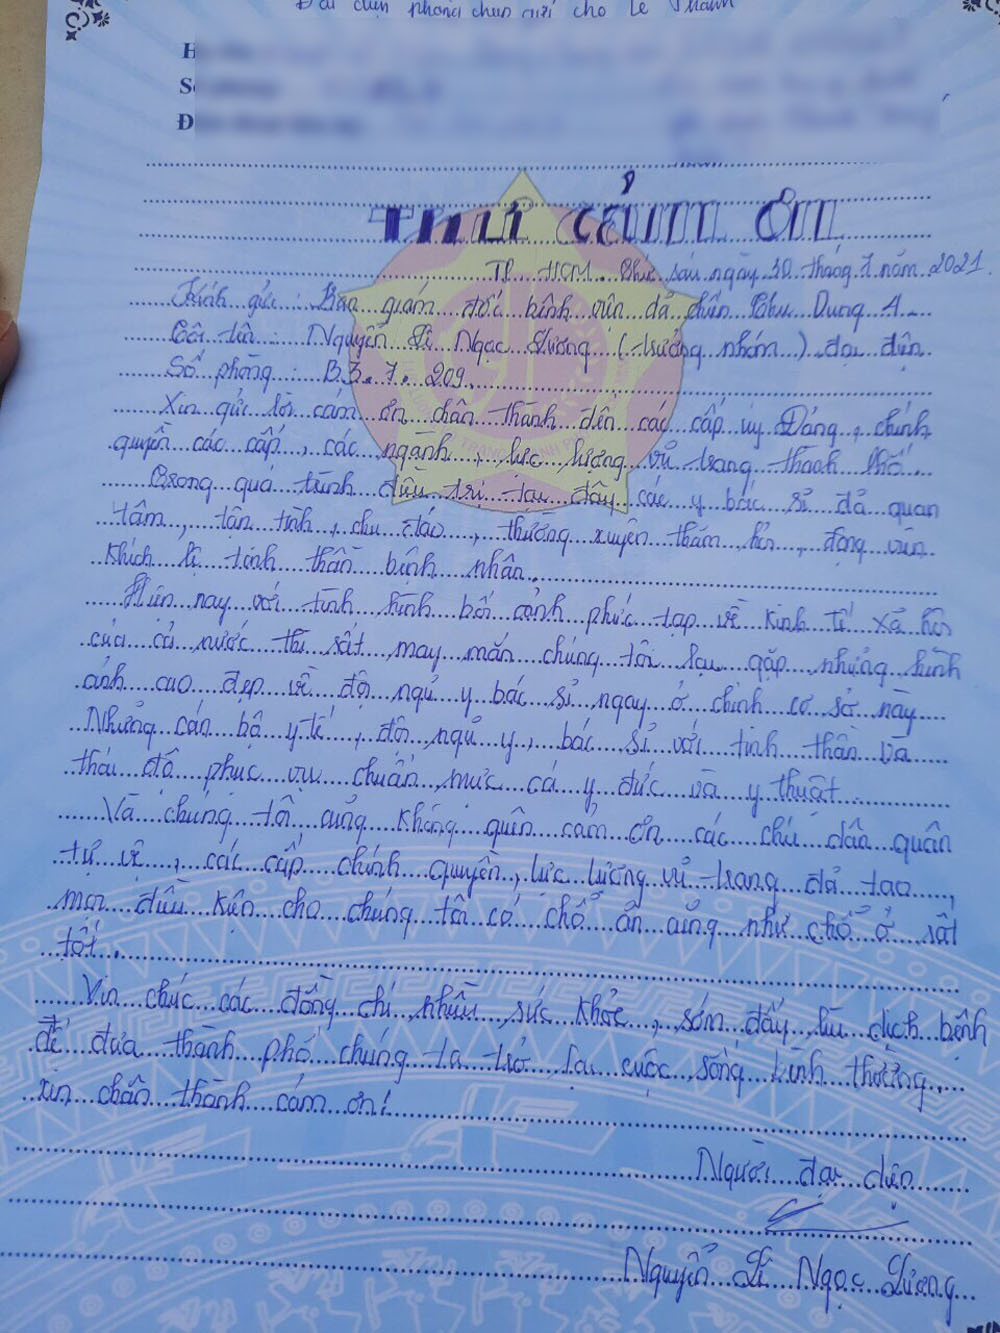 Đại diện phòng chụp gửi cho Lê Thanh
H
S
Đ
THƯ CẢM ƠN
TP HCM thứ sáu ngày 30 tháng 7 năm 2021
Kính gửi : Ban giám đốc bệnh viện dã chiến Thu Dung 4
Tôi tên : Nguyễn Lê Ngọc Lương (trưởng nhóm) đại diện
Số phòng : B3.7.209
Xin gửi lời cám ơn chân thành đến các cấp ủy Đảng, chính
quyền các cấp, các ngành, lực lượng vũ trang thành phố
Trong quá trình điều trị tại đây các y bác sĩ đã quan
tâm, tận tình, chu đáo, thường xuyên thăm hỏi, động viên
khích lệ tinh thần bệnh nhân.
Hiện nay với tình hình bối cảnh phức tạp về kinh tế xã hội
của cả nước thì rất may mắn chúng tôi lại gặp những hình
ảnh cao đẹp về đội ngủ y bác sĩ ngay ở chính cơ sở này
Những cán bộ y tế, đội ngủ y, bác sĩ với tinh thần và
thái độ phục vụ chuẩn mực cả y đức và y thuật
Và chúng tôi củng không quên cảm ơn các chú dân quân
tự vệ, các cấp chính quyền, lực lượng vũ trang đã tạo
mọi điều kiện cho chúng tôi có chổ ăn củng như chổ ở rất
tốt.
Xin chúc các đồng chí nhiều sức khỏe, sớm đẩy lùi dịch bệnh
để đưa thành phố chúng ta trở lại cuộc sống bình thường
xin chân thành cám ơn!
Người đại diện
Nguyễn Lê Ngọc Lương